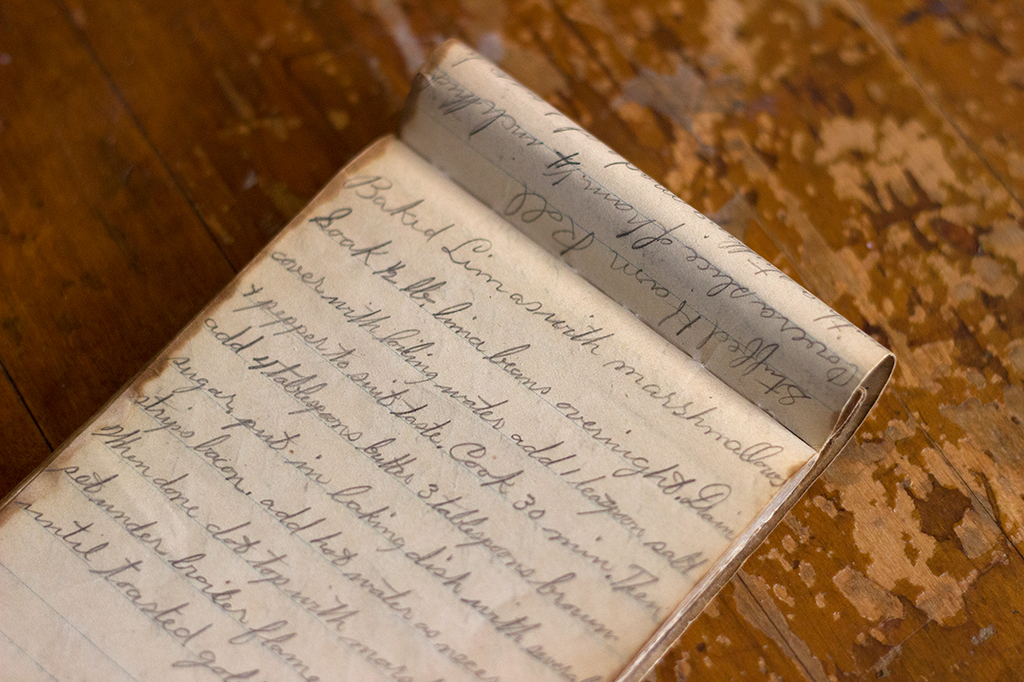 Baked Limas with marshmallows
Soak 1/2 lb. lima beans overnight. Drain
cover with boiling water add 1 teaspoon salt
& pepper to suit taste. Cook 30 min. Then
add 4 tablespoons butter 3 tablespoons brown
sugar, put in baking dish with several
strips bacon, add hot water as
When done dot top with
set under broiler flame
until toasted
Stuffed Ham Roll
slice of ham